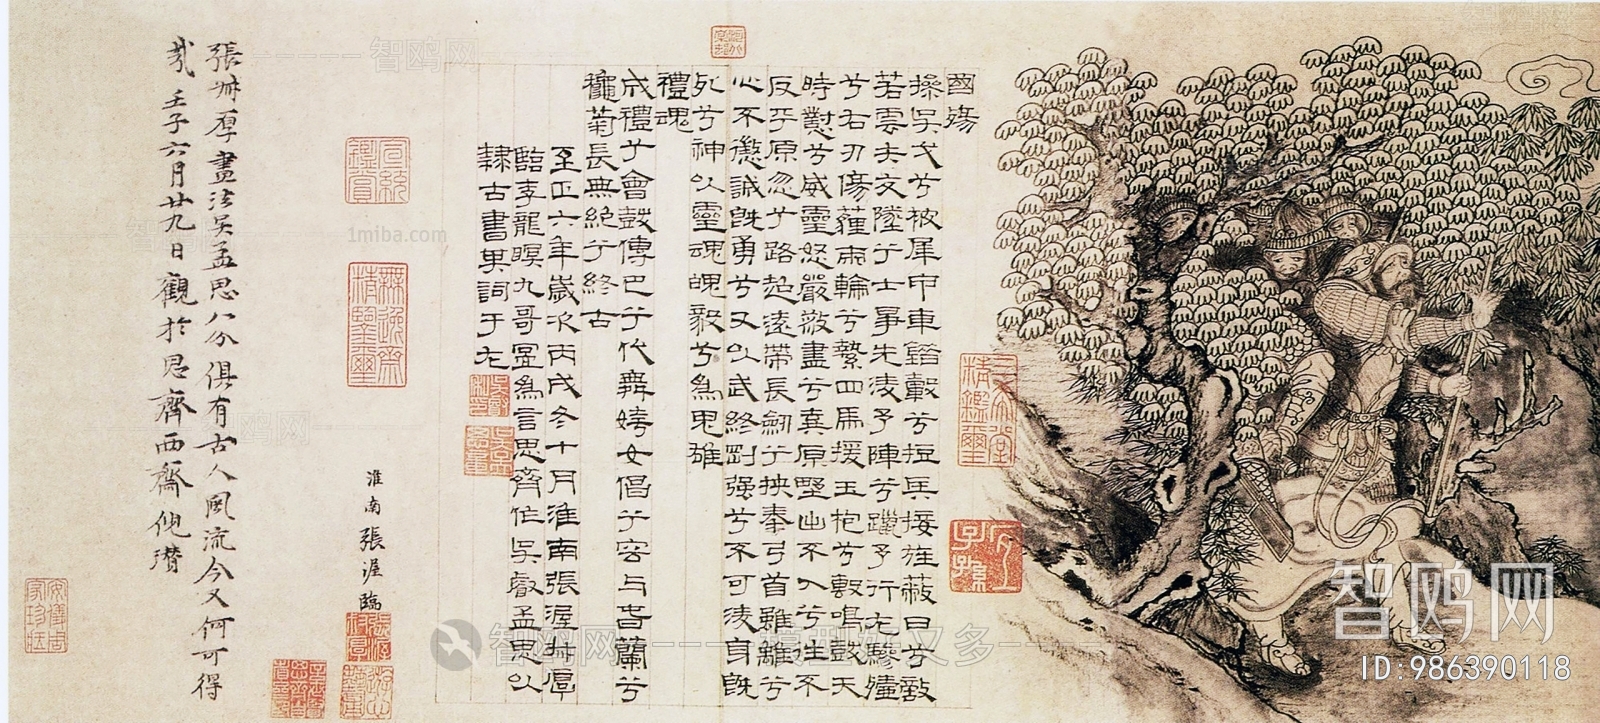 國殤
操吳戈兮被犀甲車錯轂兮短兵接旌蔽日兮敵
若雲矢交墜兮士爭先凌予陣兮躐予行左驂殪
兮右刃傷薶兩輪兮縶四馬援玉枹兮擊鳴鼓天
時懟兮威靈怒嚴殺盡兮棄原野出不入兮往不
反平原忽兮路超遠帶長劒兮挾秦弓首雖離兮
心不懲誠既勇兮又以武終剛强兮不可凌身既
死兮神以靈魂魄毅兮為鬼雄
禮魂
成禮兮會鼓傳巴兮代舞姱女倡兮容與春蘭兮
龝菊長無絕兮終古
至正六年歲次丙戌冬十月淮南張渥叔厚
臨李龍暝九哥圖為言思齊作吳睿孟思以
隸古書其詞于左
淮南張渥臨
張叔厚畫法吳孟思八分俱有古人風流今又何可得
哉壬子六月廿九日觀於思齊西齋倪瓚
宣統鑒賞
無逸齋精鑒璽
三希堂精鑑璽
安儀周家珍藏
智鸥网
1miba.com
智鸥网
ID:986390118